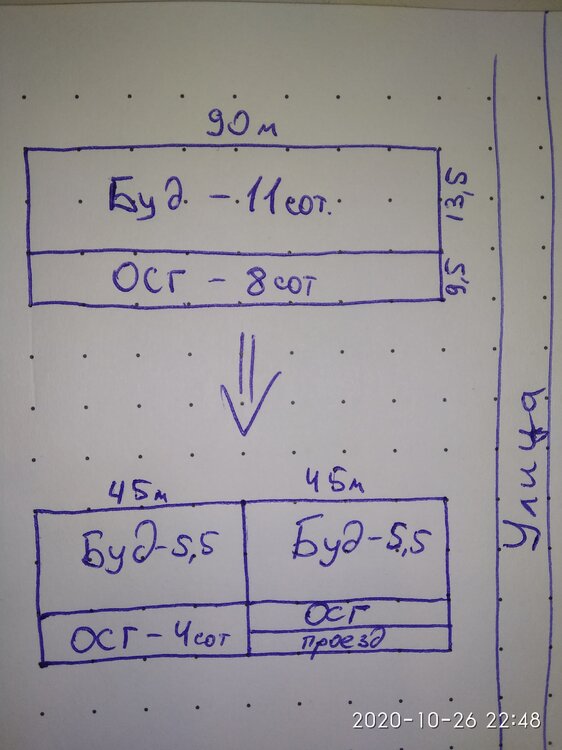 90 м
Буд - 11 сот.
13,5
ОСГ - 8 сот
9,5
45м
45м
Буд-5,5
Буд-5,5
ОСГ
ОСГ-4 сот
проезд
Улица
2020-10-26 22:48